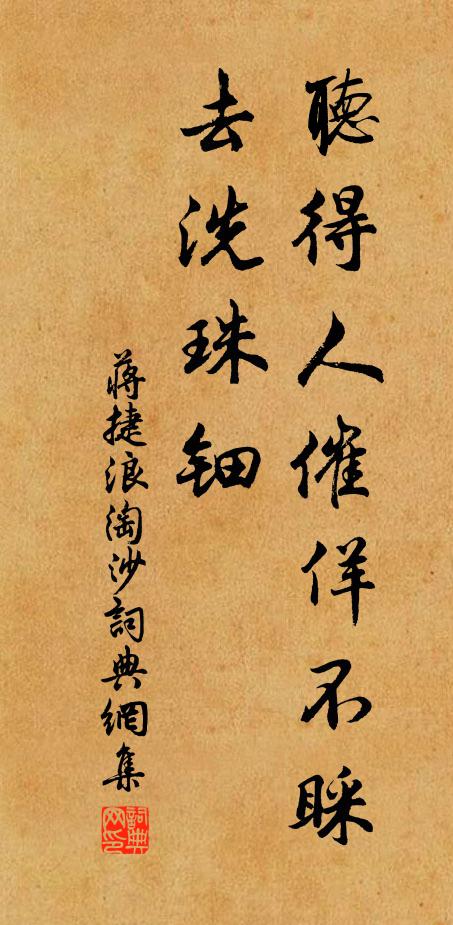 聽得人催佯不睬
去洗珠钿
蔣捷浪淘沙詞典網集
詞典网印